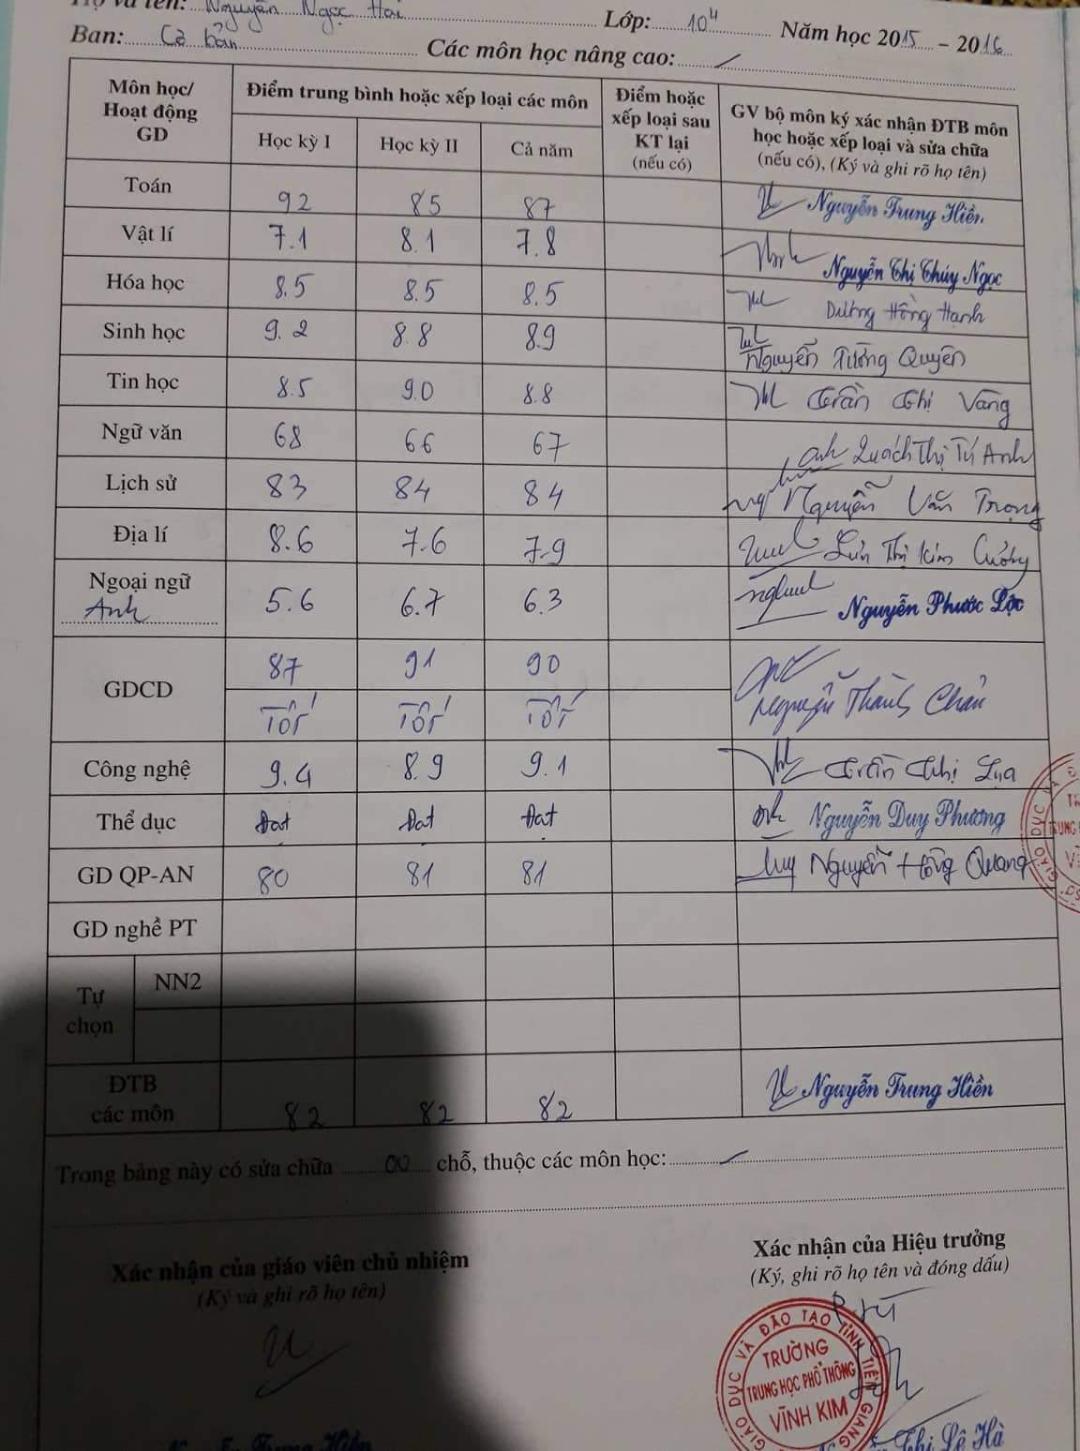 Họ và tên: Nguyễn Ngọc Hải Lớp: 10⁴ Năm học 2015 - 2016
Ban: Cơ bản Các môn học nâng cao: /
Môn học/ Hoạt động GD
Điểm trung bình hoặc xếp loại các môn
Học kỳ I Học kỳ II Cả năm
Điểm hoặc xếp loại sau KT lại (nếu có)
GV bộ môn ký xác nhận ĐTB môn học hoặc xếp loại và sửa chữa (nếu có), (Ký và ghi rõ họ tên)
Toán 92 85 87 Nguyễn Trung Hiền
Vật lí 7.1 8.1 7.8 Nguyễn Thị Thúy Ngọc
Hóa học 8.5 8.5 8.5 Dương Hồng Hạnh
Sinh học 9.2 8.8 89 Nguyễn Tường Quyên
Tin học 8.5 90 8.8 Trần Thị Vàng
Ngữ văn 68 66 67 Quách Thị Tú Anh
Lịch sử 83 84 84 Nguyễn Văn Trọng
Địa lí 8.6 7.6 7.9 Thị Kim Cương
Ngoại ngữ
Anh 5.6 6.7 6.3 Nguyễn Phước Lộc
GDCD 87 91 90
Tốt Tốt Tốt Nguyễn Thành Châu
Công nghệ 9.4 8.9 9.1 Trần Thị Lụa
Thể dục Đạt Đạt Đạt Nguyễn Duy Phương
GD QP-AN 80 81 81 Nguyễn Hồng Quang
GD nghề PT
Tự chọn NN2
ĐTB các môn 82 82 82 Nguyễn Trung Hiền
Trong bảng này có sửa chữa 00 chỗ, thuộc các môn học: /
Xác nhận của giáo viên chủ nhiệm
(Ký và ghi rõ họ tên)
Xác nhận của Hiệu trưởng
(Ký, ghi rõ họ tên và đóng dấu)
GIÁO DỤC VÀ ĐÀO TẠO TỈNH TIỀN GIANG
TRƯỜNG
TRUNG HỌC PHỔ THÔNG
VĨNH KIM
Nguyễn Trung Hiền
Thị Lệ Hà